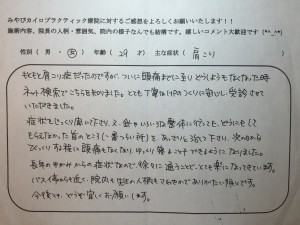 みやびカイロプラクティック療院に対するご感想をよろしくお願いいたします!!
施術内容、院長の人柄・雰囲気、院内の様子なんでも結構です。嬉しいコメント大歓迎です(*^_^*)
性別(男・女) 年齢(29才) 主な症状( 肩こり )
もともと肩こり症だったのですが、ついに頭痛までに至り、どうしようもなくなった時
ネット検索でこちらを知りました。とても丁寧なHPのつくりに安心し、受診させて
いただきました。
症状もじっくり聞いて下さり、又、鍼やいろいろな整体に行っても、どうにもして
もらえなかった首のところ(一番つらい所)を、あっさりと治して下さり、次の日から
びっくりする程に頭痛もなくなり、ゆっくり寝ることもできるようになりました。
長年のゆがみからの症状なので、徐々に通うことで、とても楽になってきています。
バス停からも近く、院内も先生の人柄もさわやかでありがたい限りです。
今後とも、どうぞ宜しくお願いします。